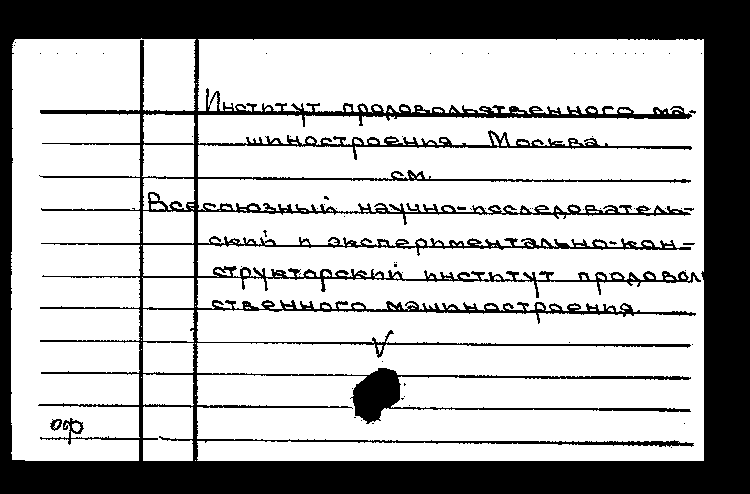 Институт продовольственного ма-
шиностроения. Москва.
см.
Всесоюзный научно-исследователь-
ский и экспериментально-кон-
структорский институт продоволь
ственного машиностроения.
оф